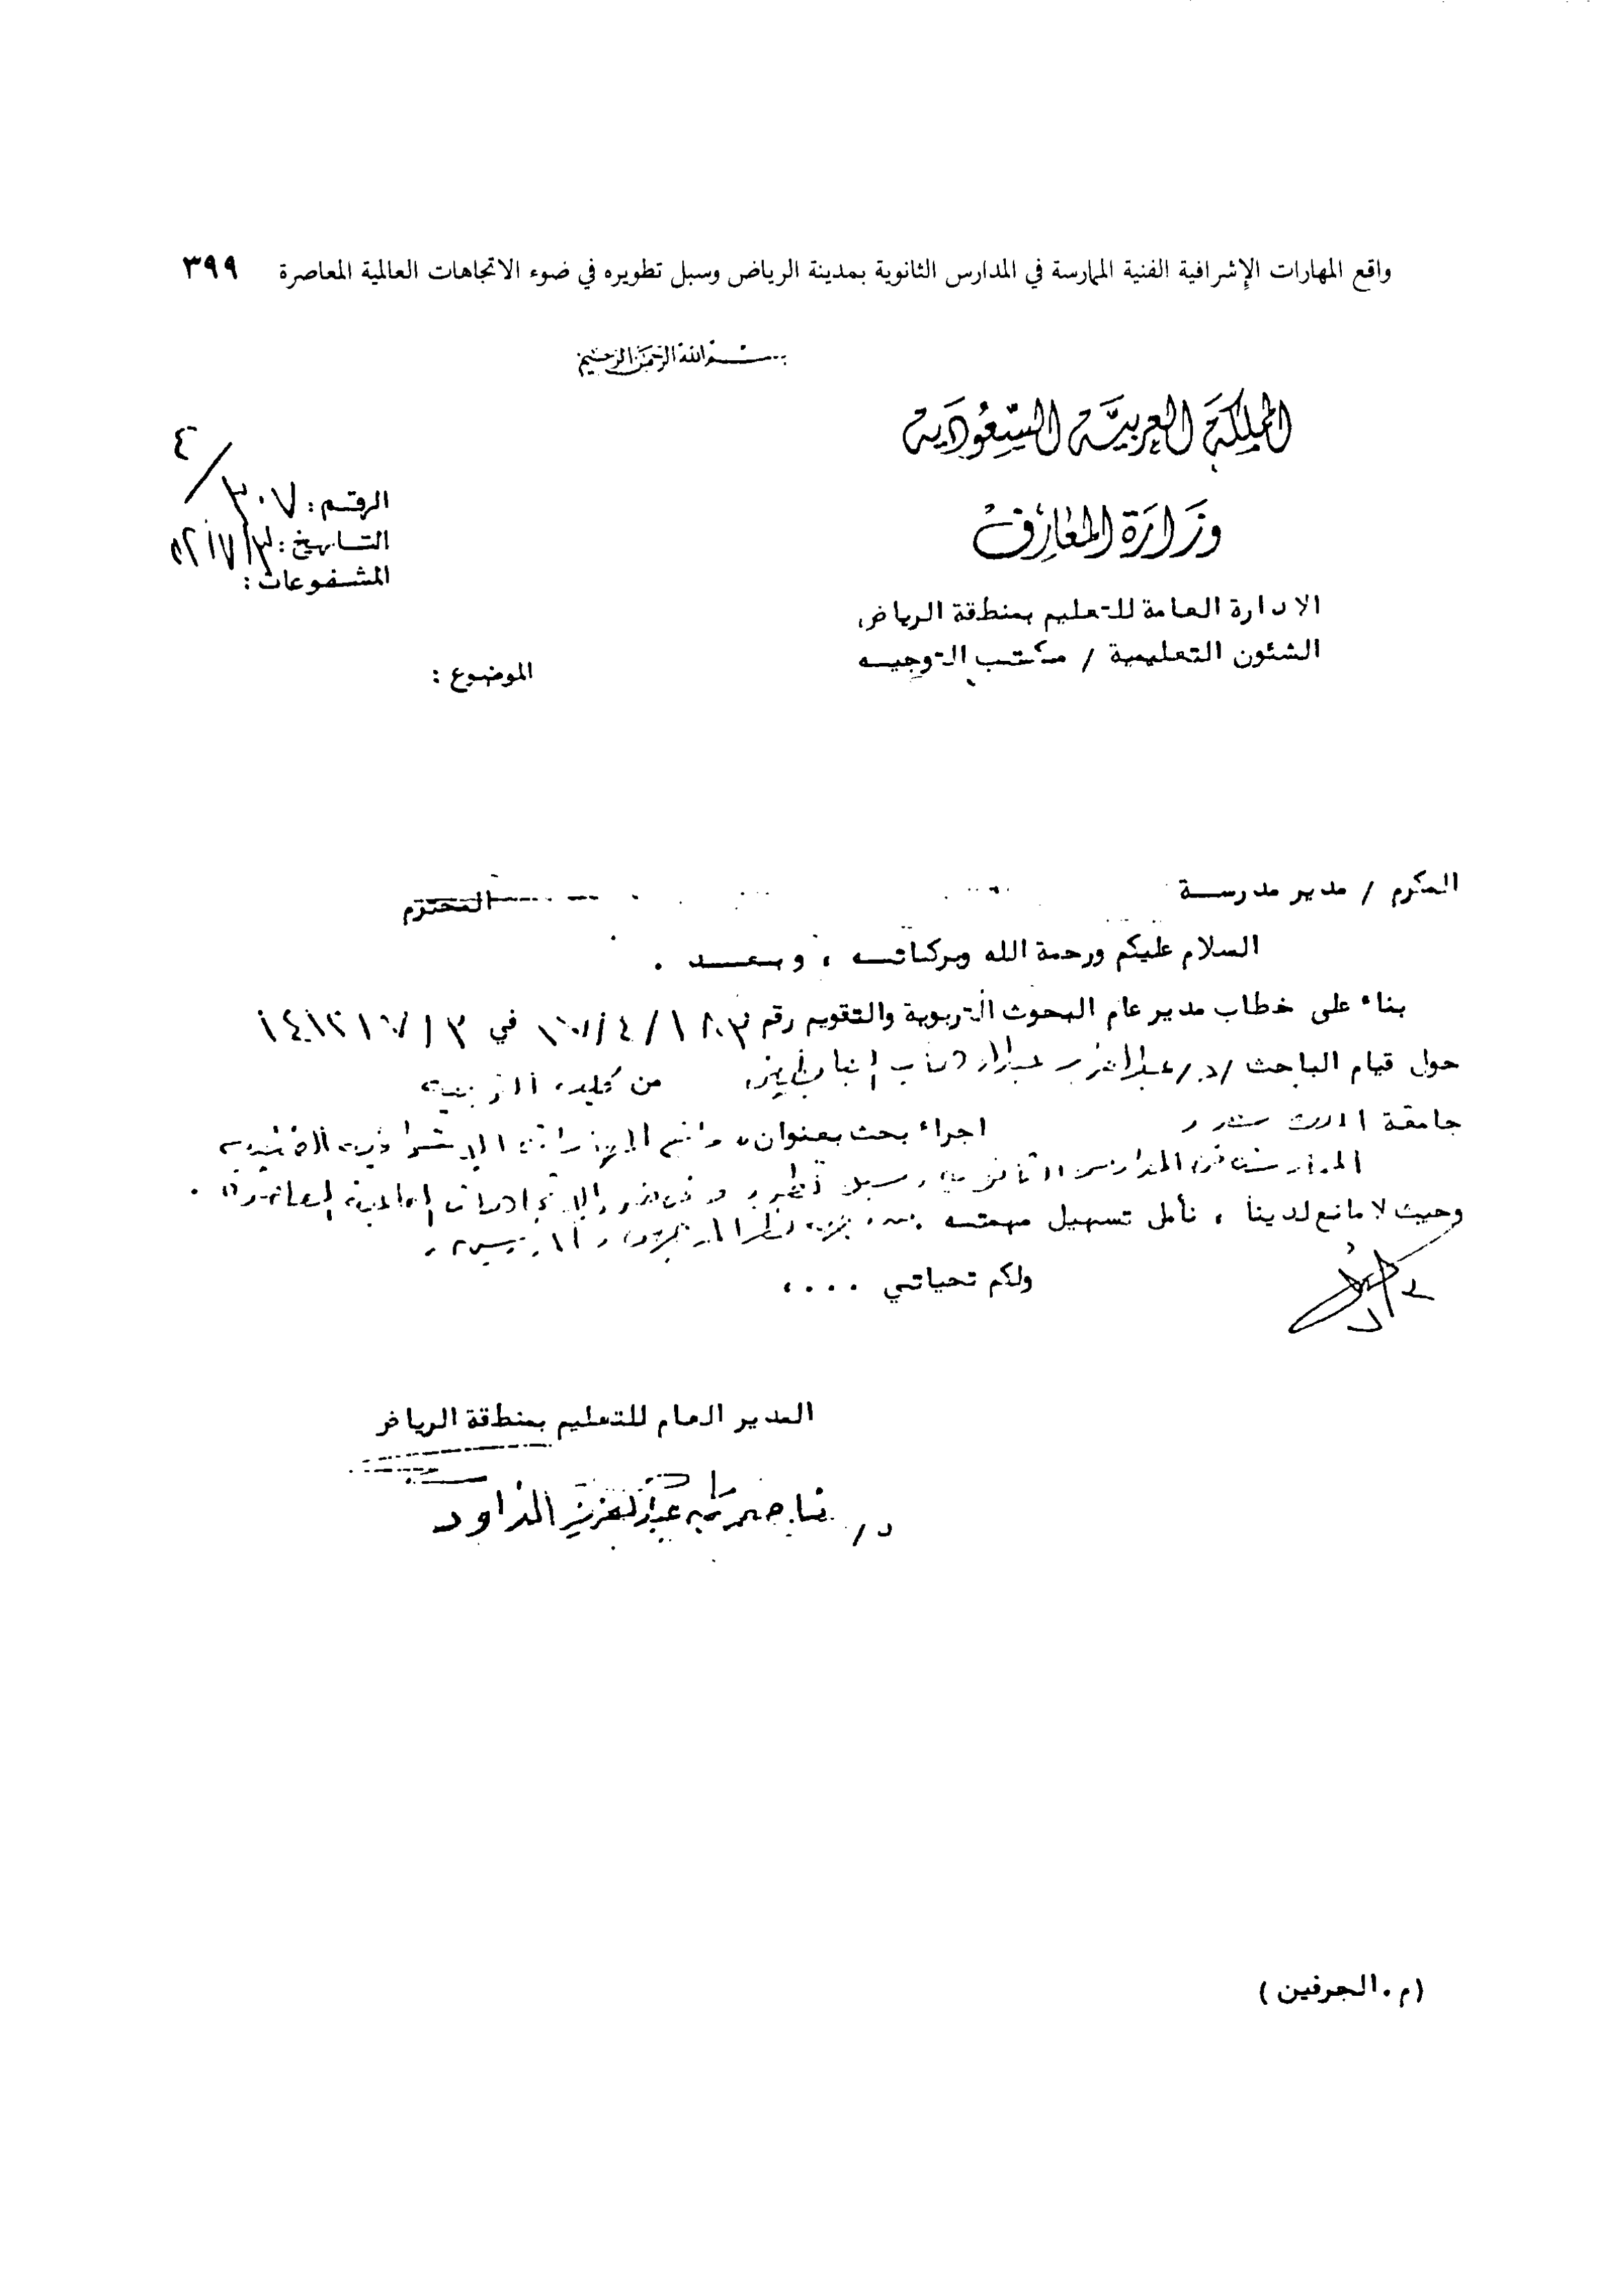 واقع المهارات الإشرافية الفنية الممارسة في المدارس الثانوية بمدينة الرياض وسبل تطويره في ضوء الاتجاهات العالمية المعاصرة ٣٩٩
بسم الله الرحمن الرحيم
المملكة العربية السعودية
وزارة المعارف
الادارة العامة للتعليم بمنطقة الرياض
الشئون التعليمية / مكتب التوجيه
الرقم : ٤/٣٠٧
التاريخ :
المشفوعات :
الموضوع :
المكرم / مدير مدرسة المحترم
السلام عليكم ورحمة الله وبركاته ، وبعد .
بناء على خطاب مدير عام البحوث التربوية والتقويم رقم في
حول قيام الباحث /د/ من كلية التربية
جامعة الملك سعود اجراء بحث بعنوان " واقع المهارات الاشرافية الفنية
المدارس الثانوية وسبل تطويره في ضوء الاتجاهات العالمية المعاصرة " .
وحيث لا مانع لدينا ، نأمل تسهيل مهمته
ولكم تحياتي . . . ،
المدير العام للتعليم بمنطقة الرياض
د/ ناصر بن عبدالعزيز الداود
(م . الجرفين )